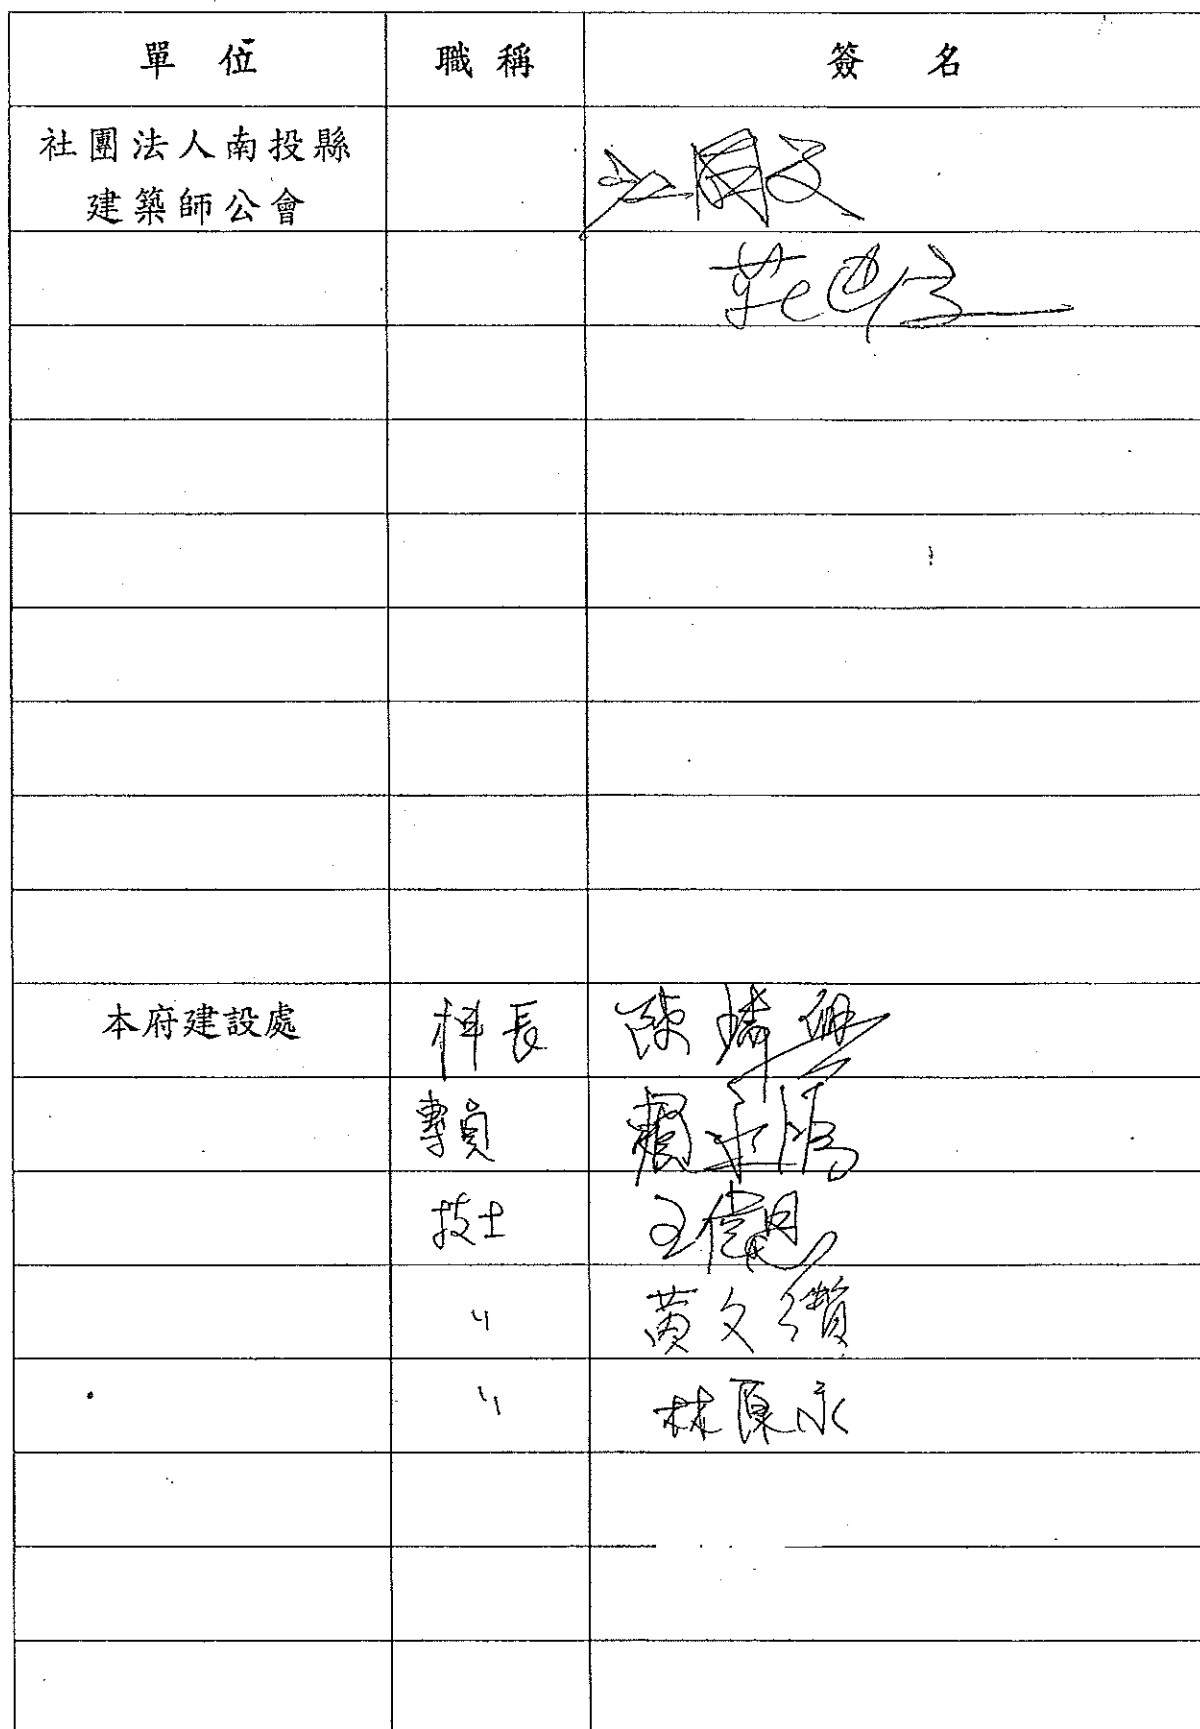 單位 職稱 簽名
社團法人南投縣
建築師公會
本府建設處 科長 陳
專員 賴
技士 王偉
〃 黃文纘
〃 林原永